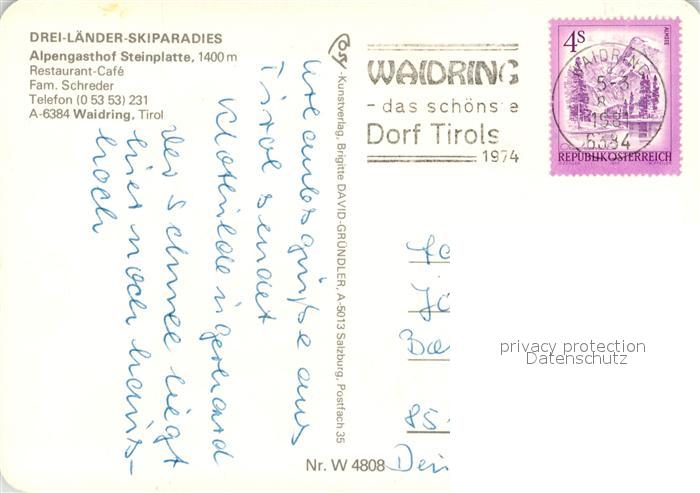 DREI-LÄNDER-SKIPARADIES
Alpengasthof Steinplatte, 1400 m
Restaurant-Café
Fam. Schreder
Telefon (0 53 53) 231
A-6384 Waidring, Tirol
Urlaubsgrüße aus
Tirol sendet
Klothilde u. Gerhard
Der Schnee liegt
hier noch haus-
hoch
-Kunstverlag, Brigitte DAVID-GRÜNDLER, A-5013 Salzburg, Postfach 35
Nr. W 4808
WAIDRING
- das schönste
Dorf Tirols
1974
4S
ALMSEE
WAIDRING
1981
6384
REPUBLIK ÖSTERREICH
85
privacy protection
Datenschutz